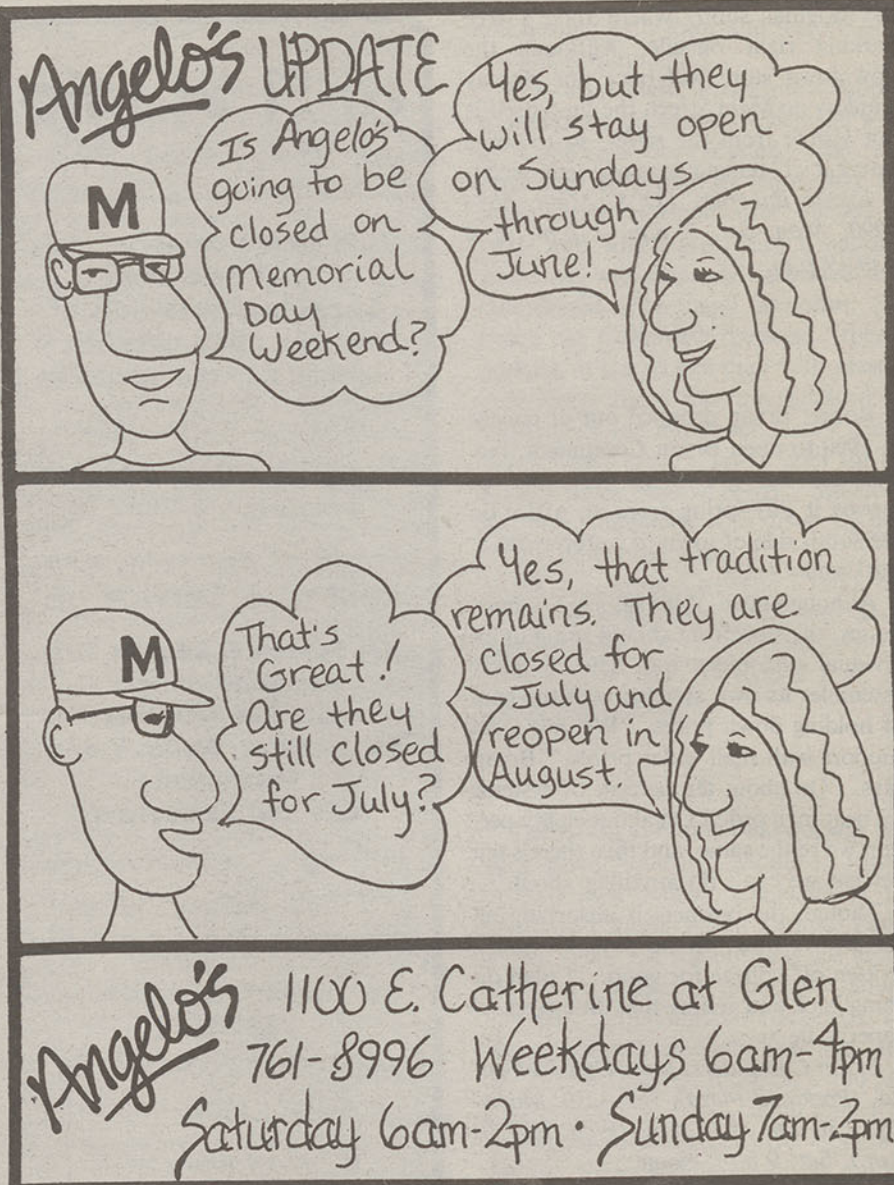 Angelo's UPDATE
M
Is Angelo's
going to be
closed on
Memorial
Day
Weekend?
Yes, but they
will stay open
on Sundays
through
June!
M
That's
Great!
Are they
still closed
for July?
Yes, that tradition
remains. They are
closed for
July and
reopen in
August.
Angelo's
1100 E. Catherine at Glen
761-8996 Weekdays 6am-4pm
Saturday 6am-2pm • Sunday 7am-2pm